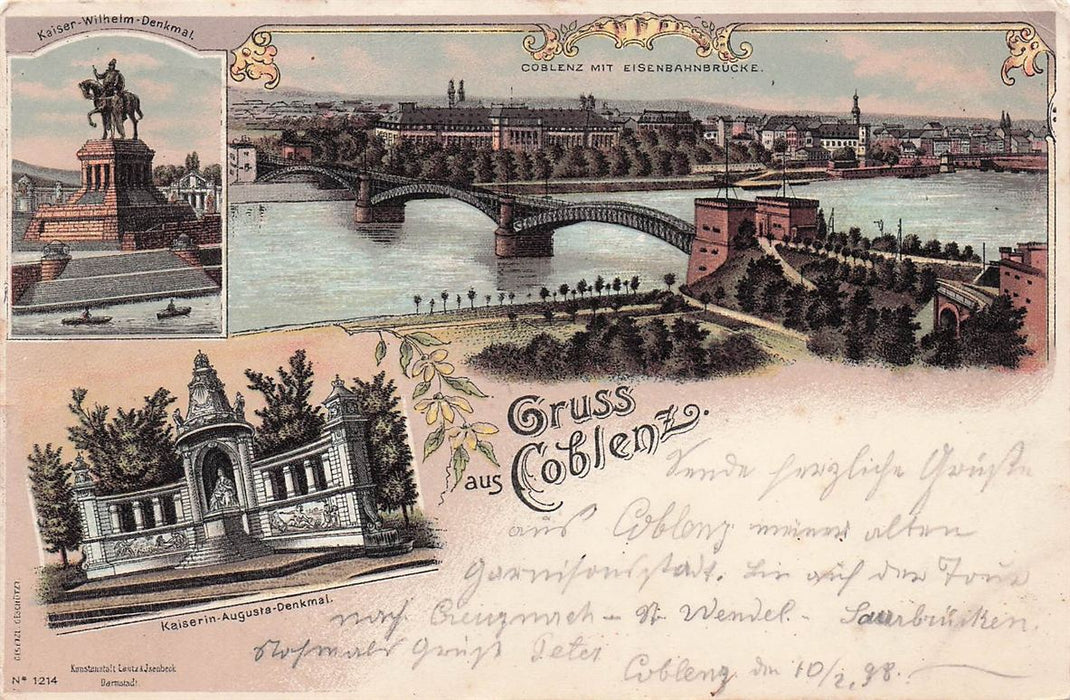 Kaiser-Wilhelm-Denkmal.
COBLENZ MIT EISENBAHNBRÜCKE.
Gruss
aus Coblenz.
Sende herzliche Grüße
aus Coblenz meiner alten
Garnisonsstadt. Bin auf der Tour
nach Creuznach - St. Wendel - Saarbrücken.
Nochmals Grüßt Peter
Coblenz den 10/2. 98.
Kaiserin-Augusta-Denkmal.
GESETZL. GESCHÜTZT
Kunstanstalt Lautz & Isenbeck
Darmstadt.
No 1214